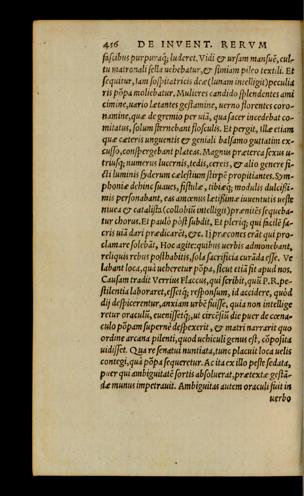 456 DE INVENT. RERVM
fascibus purpuraq́; luderet. Vidi & ursam mansuē, cul-
tu matronali sella uehebatur, & simiam pileo textili. Et
sequitur, Iam sospitatricis deæ (lunam intelligit) peculia
ris põpa moliebatur. Mulieres candido splendentes ami
cimine, uario lætantes gestamine, uerno florentes coro-
namine, quæ de gremio per uiã, qua sacer incedebat co-
mitatus, solum sternebant flosculis. Et pergit, Illæ etiam
quæ cæteris unguentis & geniali balsamo guttatim ex-
cusso, conspergebant plateas. Magnus præterea sexus u-
triusq; numerus lucernis, tedis, cereis, & alio genere fi-
cti luminis syderum cælestium stirpē propitiantes. Sym-
phoniæ dehinc suaues, fistulæ, tibiæq; modulis dulcissi-
mis personabant, eas amœnus lætissimæ iuuentutis ueste
niuea & catalista (collobiũ intelligit) prænitēs sequeba-
tur chorus. Et paulò pòst subdit, Et pleriq; qui facilē sa-
cris uiã dari prædicarēt, &c. Ij præcones erãt qui pro-
clamare solebãt, Hoc agite: quibus uerbis admonebant,
reliquis rebus posthabitis, sola sacrificia curãda esse. Ve
labant loca, quà ueheretur põpa, sicut etiã fit apud nos.
Causam tradit Verrius Flaccus, qui scribit, quũ P.R. pe-
stilentia laboraret, essetq́; responsum, id accidere, quòd
dij despicerentur, anxiam urbē fuisse, quia non intellige
retur oraculũ, euenissetq́;, ut circēsiũ die puer de cœna-
culo põpam supernè despexerit, & matri narrarit quo
ordine arcana pilenti, quod uehiculi genus est, cõposita
uidisset. Qua re senatui nuntiata, tunc placuit loca uelis
contegi, quà põpa sequeretur. Ac ita ex illo peste sedata,
puer qui ambiguitatē sortis absoluerat, prætextæ gestã-
dæ munus impetrauit. Ambiguitas autem oraculi fuit in
uerbo